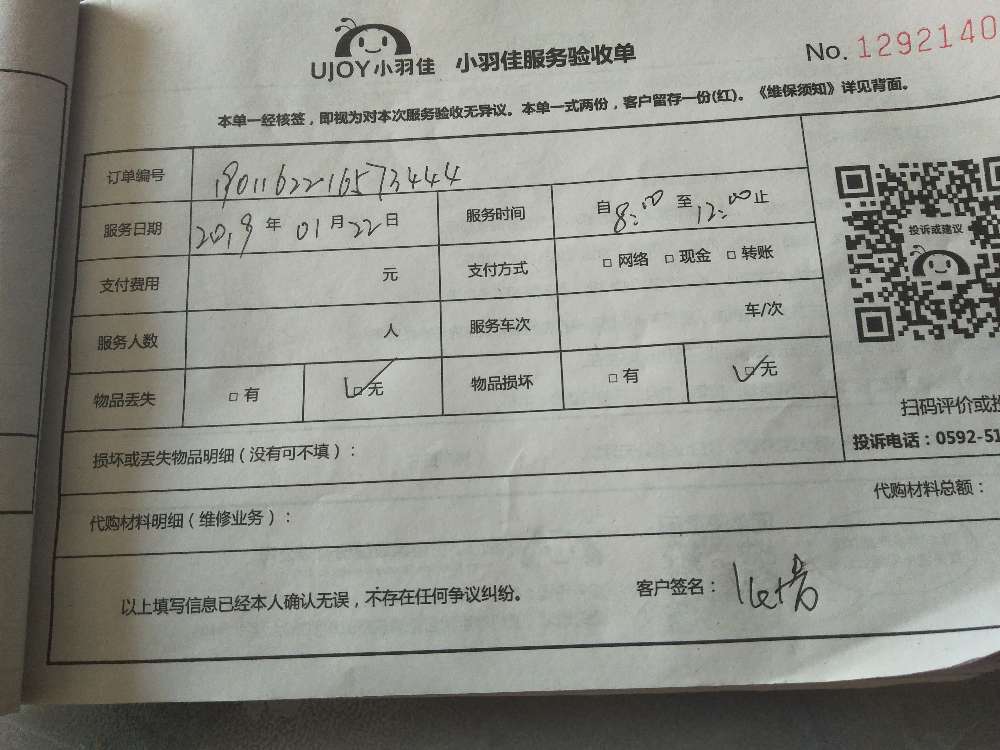 UJOY小羽佳 小羽佳服务验收单 No. 1292140
本单一经核签，即视为对本次服务验收无异议。本单一式两份，客户留存一份(红)。《维保须知》详见背面。
订单编号 1901162216573444
服务日期 2019年01月22日 服务时间 自8:00至12:00止
投诉或建议
支付费用 元 支付方式 □网络 □现金 □转账
服务人数 人 服务车次 车/次
物品丢失 □有 ☑无 物品损坏 □有 ☑无
扫码评价或投
投诉电话：0592-51
损坏或丢失物品明细（没有可不填）：
代购材料明细（维修业务）： 代购材料总额：
以上填写信息已经本人确认无误，不存在任何争议纠纷。 客户签名：